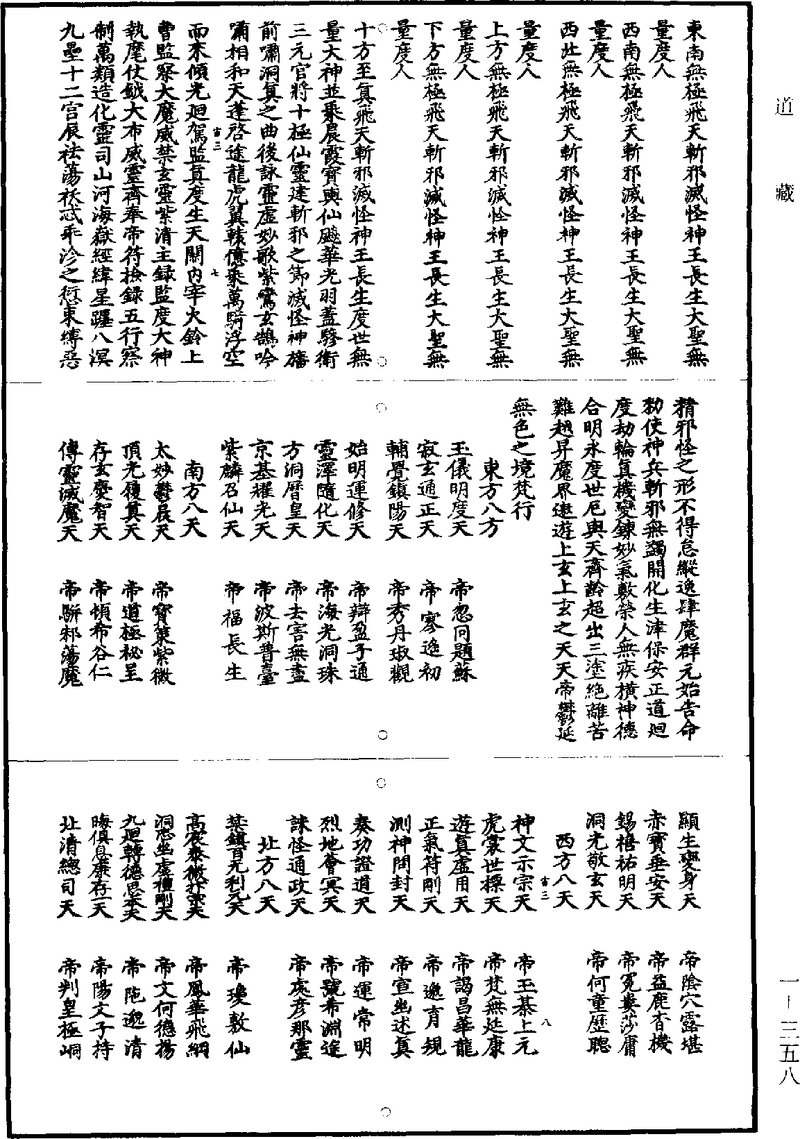 道藏
一—三五八
東南無極飛天斬邪滅怪神王長生大聖無
量度人
西南無極飛天斬邪滅怪神王長生大聖無
量度人
西北無極飛天斬邪滅怪神王長生大聖無
量度人
上方無極飛天斬邪滅怪神王長生大聖無
量度人
下方無極飛天斬邪滅怪神王長生大聖無
量度人
十方至真飛天斬邪滅怪神王長生度世無
量大神並乘晨霞寶輿仙飈華光羽蓋驂衛
三元官將十極仙靈建斬邪之節滅怪神旛
前嘯洞真之曲後詠靈虛妙歌紫鸞玄鵠吟
嘯相和天蓬啓途龍虎翼轅億乘萬騎浮空
吉三
七
而來傾光迴駕監真度生天關內宰火鈴上
曹監察大魔威禁玄靈紫清主錄監度大神
執麾仗鉞大布威靈齊奉帝符撿錄五行察
制萬類造化靈司山河海嶽經緯星躔八溟
九壘十二宮辰袪蕩祅忒平沴之愆束縛惡
精邪怪之形不得怠縱逸肆魔群元始告命
勑使神兵斬邪無蠲開化生津保安正道迴
度劫輪真機變鍊妙氣敷榮人無疾橫神德
合明永度世厄與天齊齡超出三塗絶離苦
難超昇魔界遨遊上玄上玄之天天帝鬱延
無色之境梵行
東方八方
玉儀明度天 帝忽同題蘇
寂玄通正天 帝寥逸初
輔覺鎮陽天 帝秀丹琡觀
始明運修天 帝辯盈子通
靈澤隨化天 帝海光洞珠
方洞曆皇天 帝去害無盡
京基耀光天 帝波斯普臺
紫麟召仙天 帝福長生
南方八天
太妙鬱晨天 帝寶葉紫微
頂光履真天 帝道極秘呈
存玄慶智天 帝頃希谷仁
傳靈滅魔天 帝駢邪蕩魔
顯生變身天 帝陰穴露堪
赤寶垂安天 帝益鹿杳機
錫禧祐明天 帝冤婁莎庸
洞光敬玄天 帝何童歷聰
西方八天
神文示宗天 帝王綦上元
吉三
八
虎裳世標天 帝梵無廷康
遊真虛用天 帝謁昌華龍
正氣符剛天 帝邈育規
測神問封天 帝宣幽述真
奏功證道天 帝運常明
烈地薈冥天 帝號希淵途
誅怪通政天 帝處彥那靈
北方八天
棊鎮百光利元天 帝瓊敷仙
高辰泰微天 帝風華飛綱
洞忽幽虛種剛天 帝文何德揚
九迴轉德天 帝陁邈清
晦俱息康存天 帝陽文子持
北清總司天 帝判皇極峒